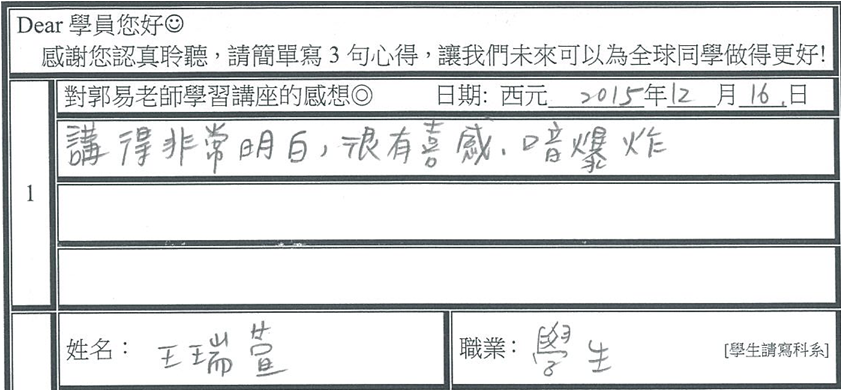 Dear 學員您好☺
感謝您認真聆聽，請簡單寫 3 句心得，讓我們未來可以為全球同學做得更好!
對郭易老師學習講座的感想◎ 日期: 西元 2015 年 12 月 16 日
講得非常明白，很有喜感、暗爆炸
1
姓名： 王瑞萱 職業： 學生 [學生請寫科系]